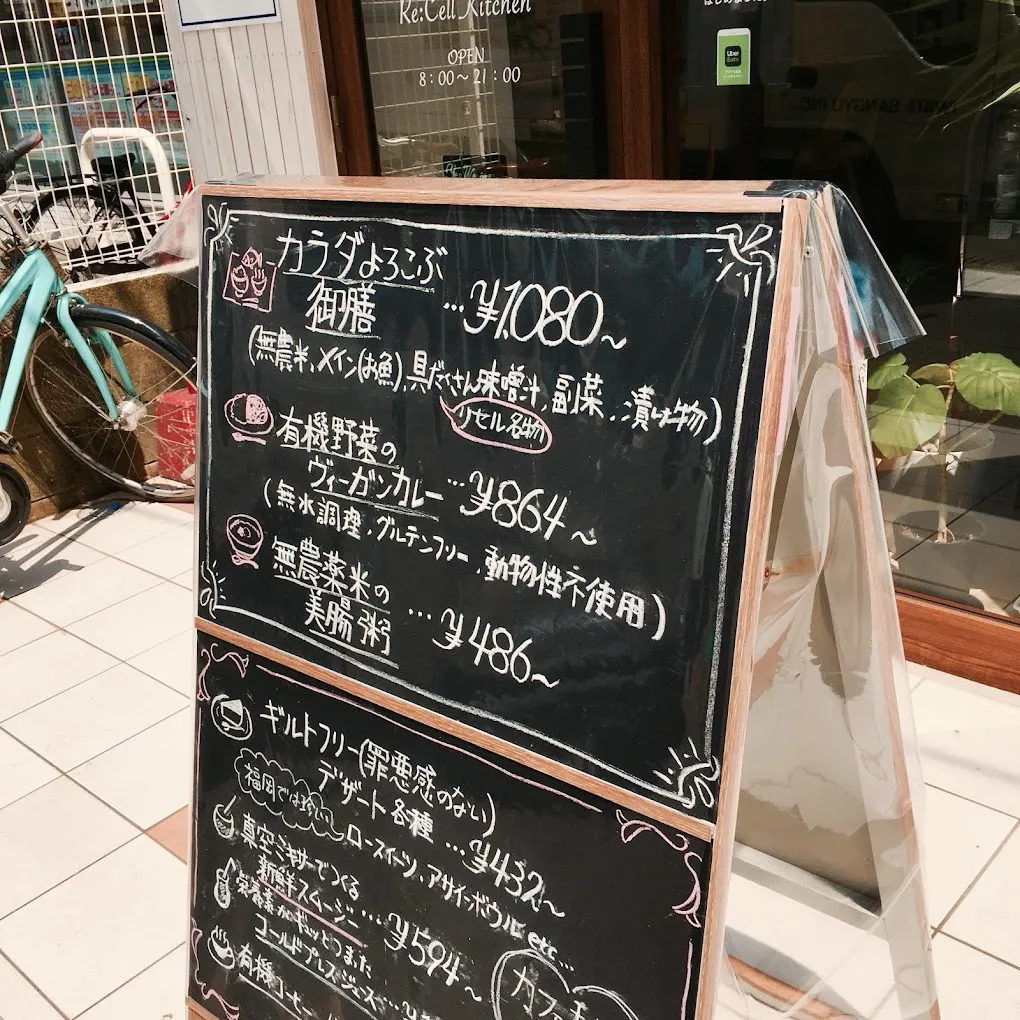 Re:Cell Kitchen
OPEN
8:00〜21:00
Uber
Eats
カラダよろこぶ
御膳 …¥1,080〜
(無農米,メイン(お魚),具だくさん味噌汁,副菜,漬け物)
リセル名物
有機野菜の
ヴィーガンカレー …¥864〜
(無水調理,グルテンフリー,動物性不使用)
無農薬米の
美腸粥 …¥486〜
ギルトフリー(罪悪感のない)
デザート各種 …¥432〜
福岡では珍しい
ロースイーツ、アサイーボウル etc…
真空ミキサーでつくる
新鮮スムージー …¥594〜
栄養素がギュッとつまった
コールドプレスジュース …¥
有機コーヒー
カフェ